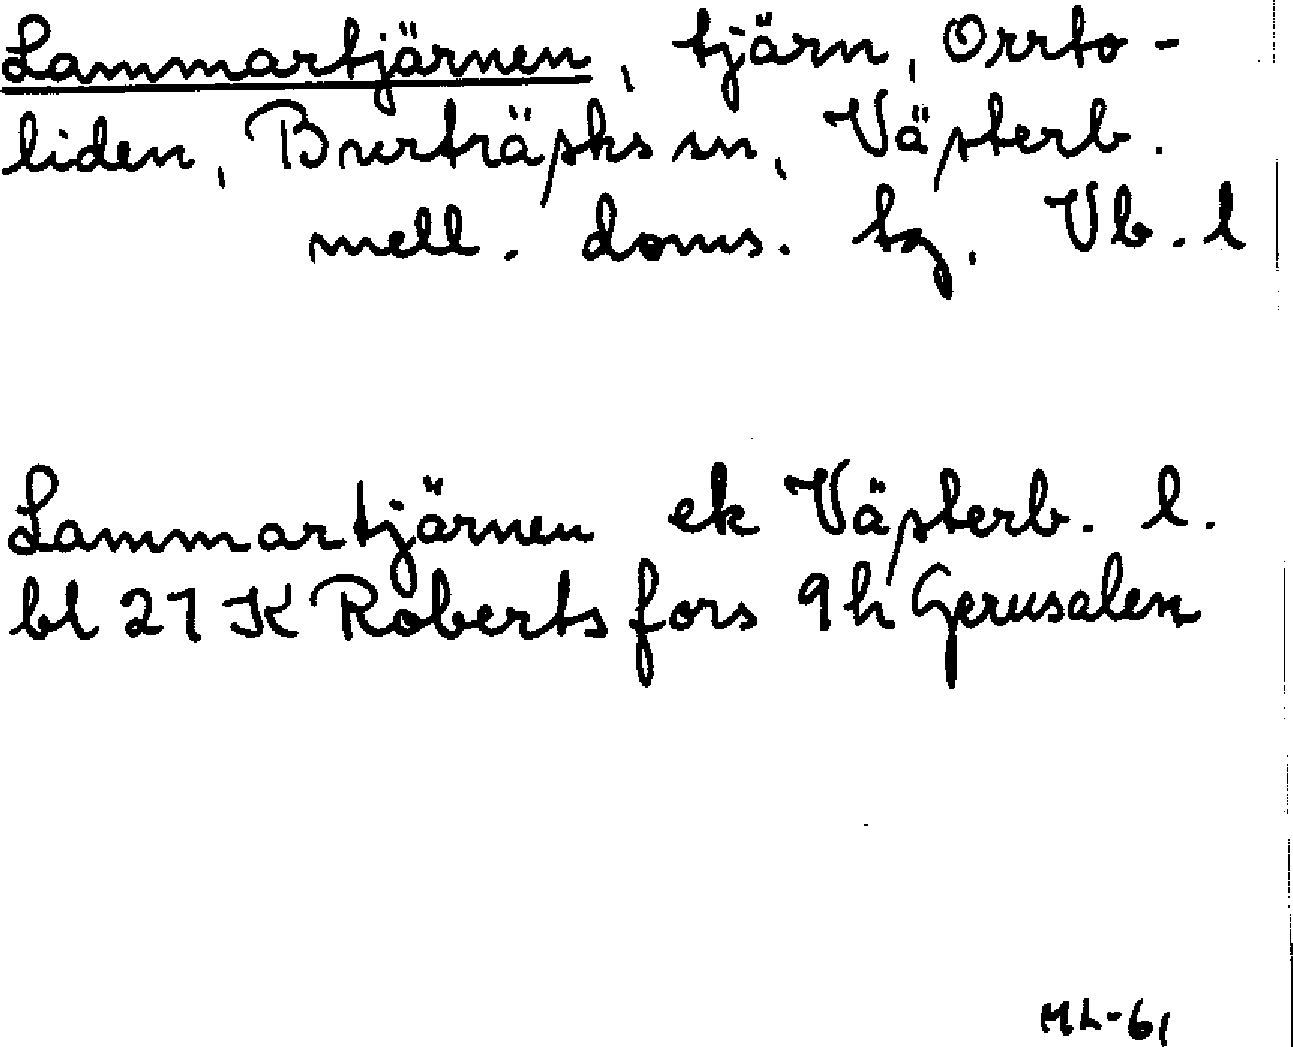 Lammartjärnen, tjärn, Orrto-
liden, Burträsks sn, Västerb.
mell. doms. tg, Vb. l
Lammartjärnen ek Västerb. l.
bl 21 K Robertsfors 9h Jerusalem
ML-61